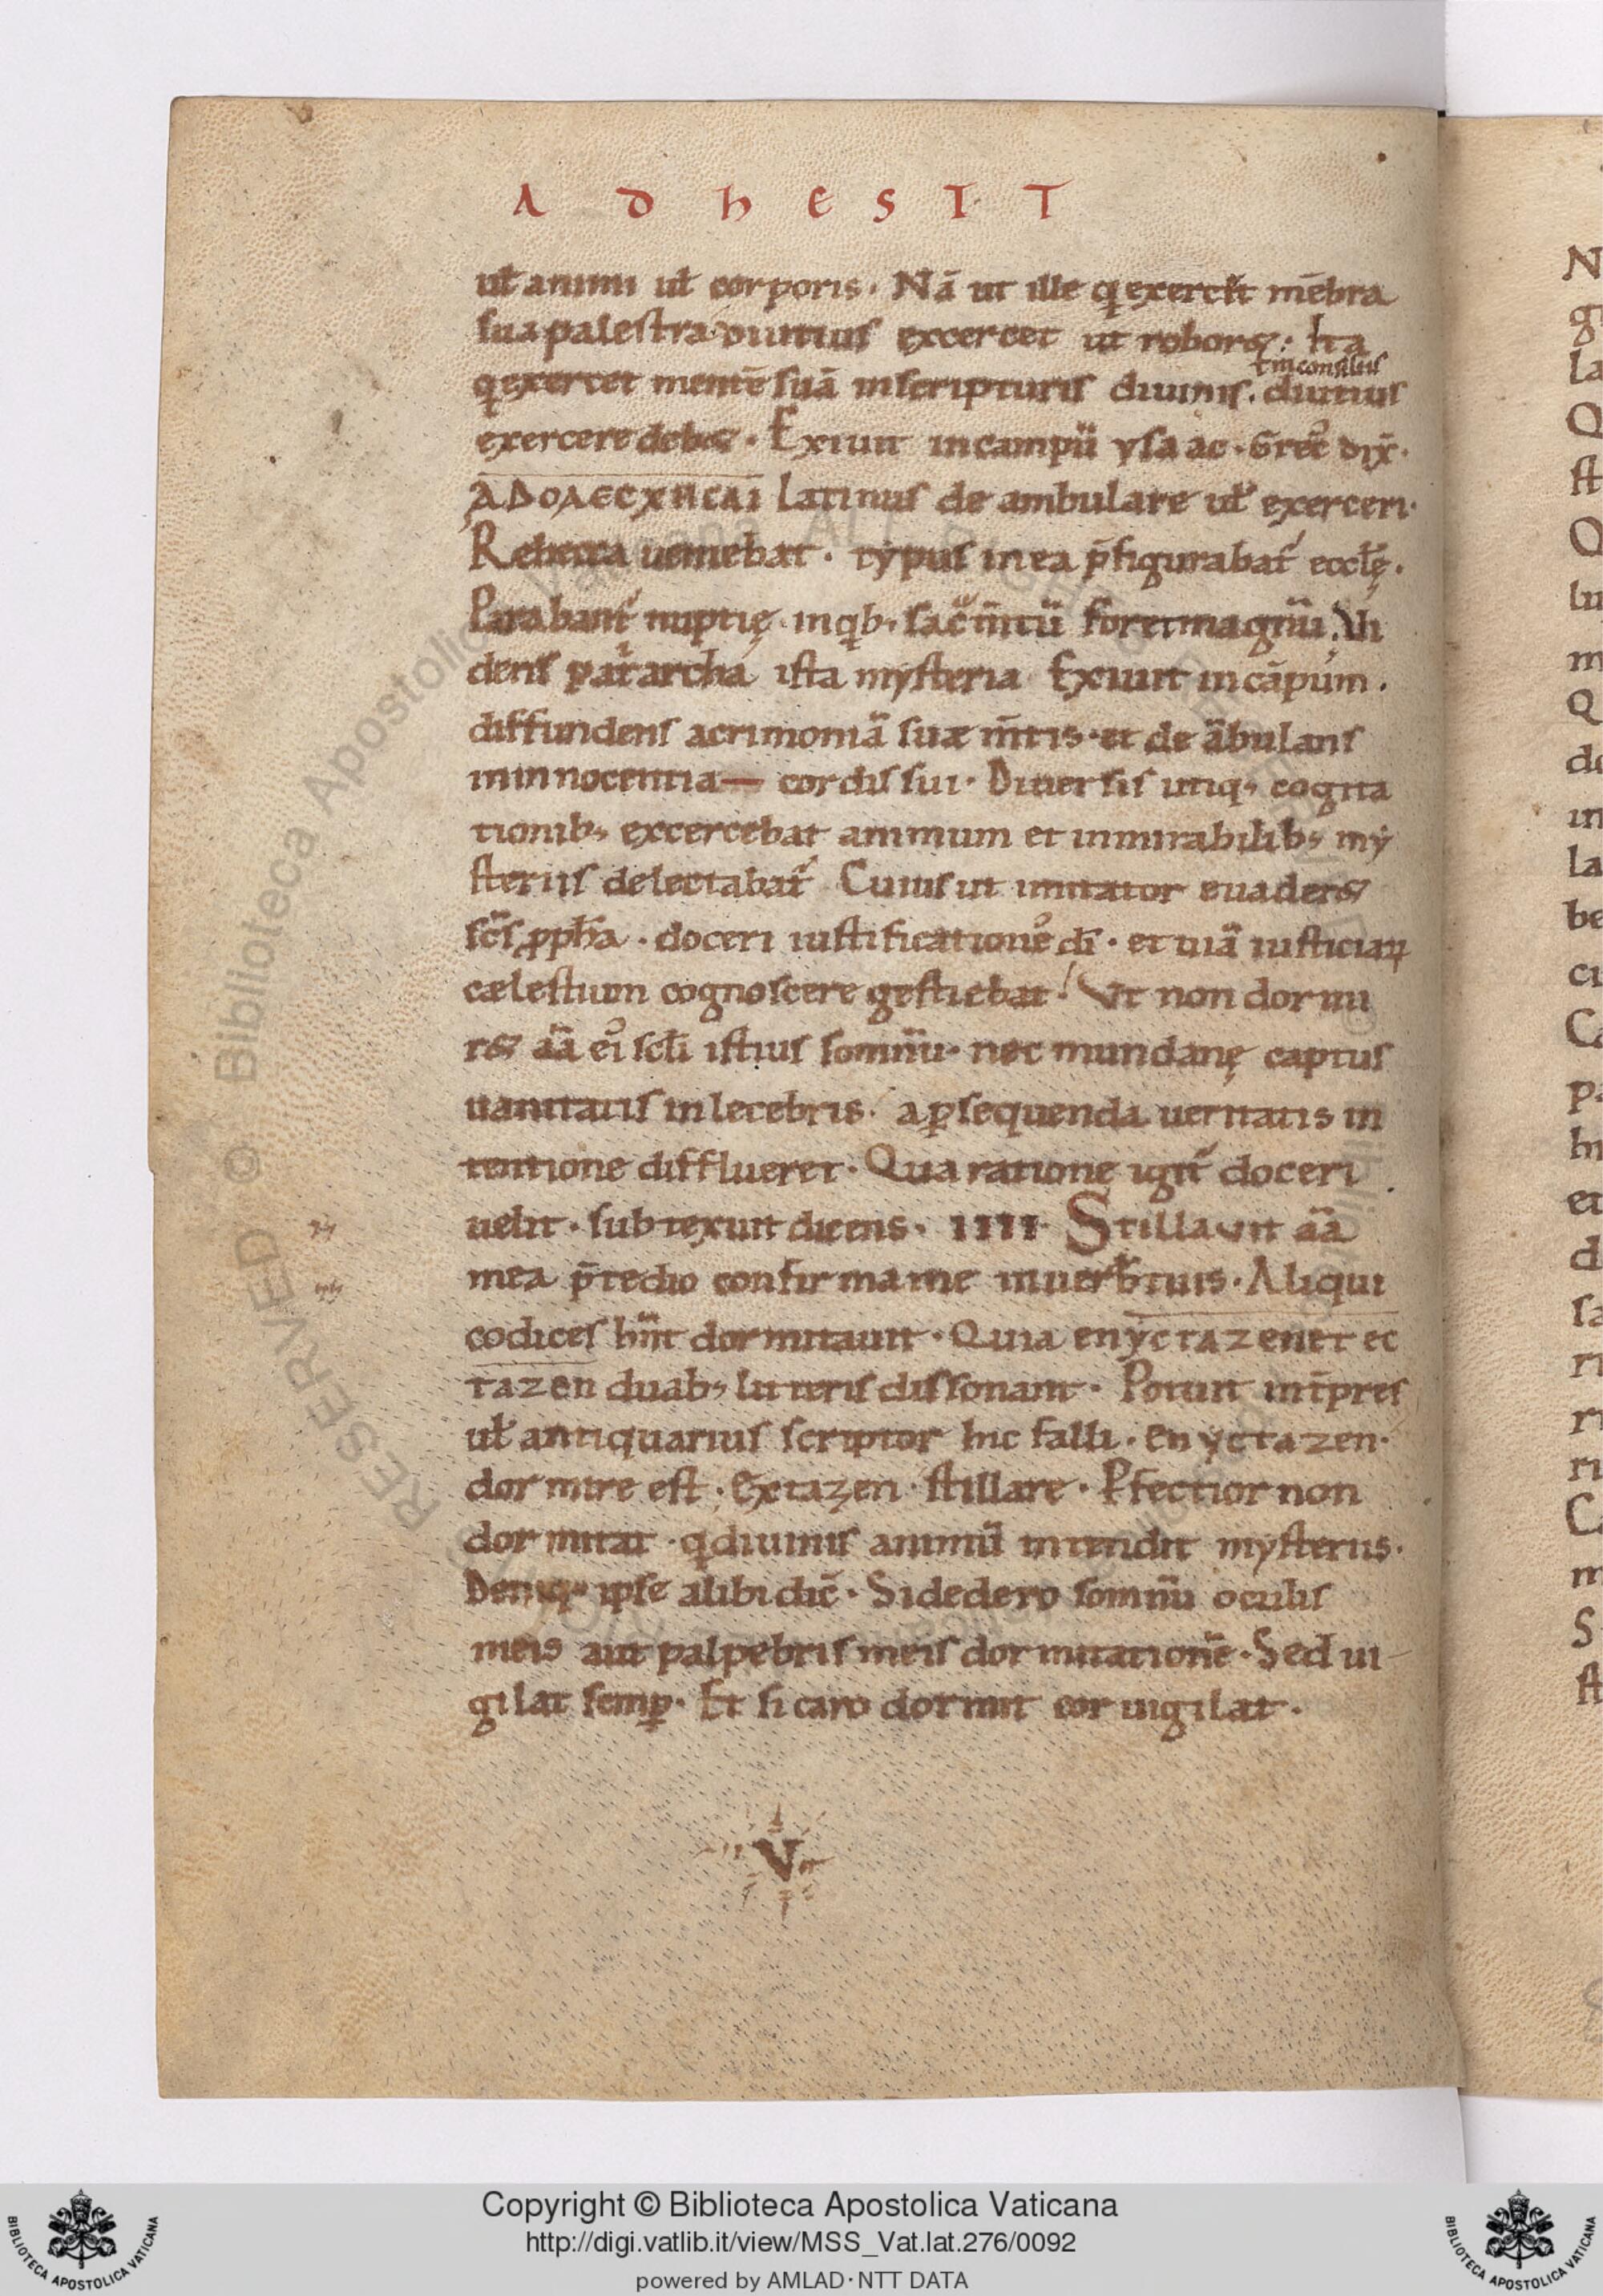 A D H E S I T
ul̄ animi ul̄ corporis · Nā ut ille q exercet mēbra
sua palestra diutius excercet ut roboret; Ita
q exercet mentē suā inscripturis diuinis. diutius
t in consiliis
exercere debet · Exiuit incampū ysaac · Grec̄ dix̄·
ΑDΟΛΕCΧΗCΑΙ Latinus de ambulare ul̄ exerceri·
Rebecca ueniebat · typus inea p̄figurabat᷑ eccl̄ę.
Parabant᷑ nuptię · inqb; sac̄m̄tū foret magnū; Vi
dens patͥarcha ista mysteria Exiuit incāpum .
diffundens acrimoniā suæ m̄tis · et de ābulans
ininnocentia— cordis sui · Diuersis utiq; cogita
tionib; excercebat animum et inmirabilib; my
steriis delectabat᷑ Cuius ut imitator euaderet
sc̄s pph̄a · doceri iustificationē dī · et uiā iusticiaꝝ
cælestium cognoscere gestiebat! Vt non dormi
ret āā eī scl̄i istius somnū · nec mundanę captus
uanitatis inlecebris. a ꝑsequenda ueritatis in
tentione difflueret · Qua ratione igit᷑ doceri
uelit · subtexuit dicens · IIII · Stillauit āā
mea p̄ tedio confirma me inuerb̄ tuis · Aliqui
codices hn̄t dormitauit · Quia enyctazen et ec
tazen duab; litteris dissonant · Potuit int̄pres
ul̄ antiquarius scriptor hic falli · enyctazen·
dormire est · extazen · stillare · Pfectior non
dormitat · q diuinis animū intendit mysteriis·
Deniq; ipse alibi dic̄ · Si dedero somnū oculis
meis aut palpebris meis dormitationē · Sed ui
gilat semꝑ · Et si caro dormit cor uigilat .
V
Copyright © Biblioteca Apostolica Vaticana
http://digi.vatlib.it/view/MSS_Vat.lat.276/0092
powered by AMLAD·NTT DATA
BIBLIOTECA APOSTOLICA VATICANA
BIBLIOTECA APOSTOLICA VATICANA